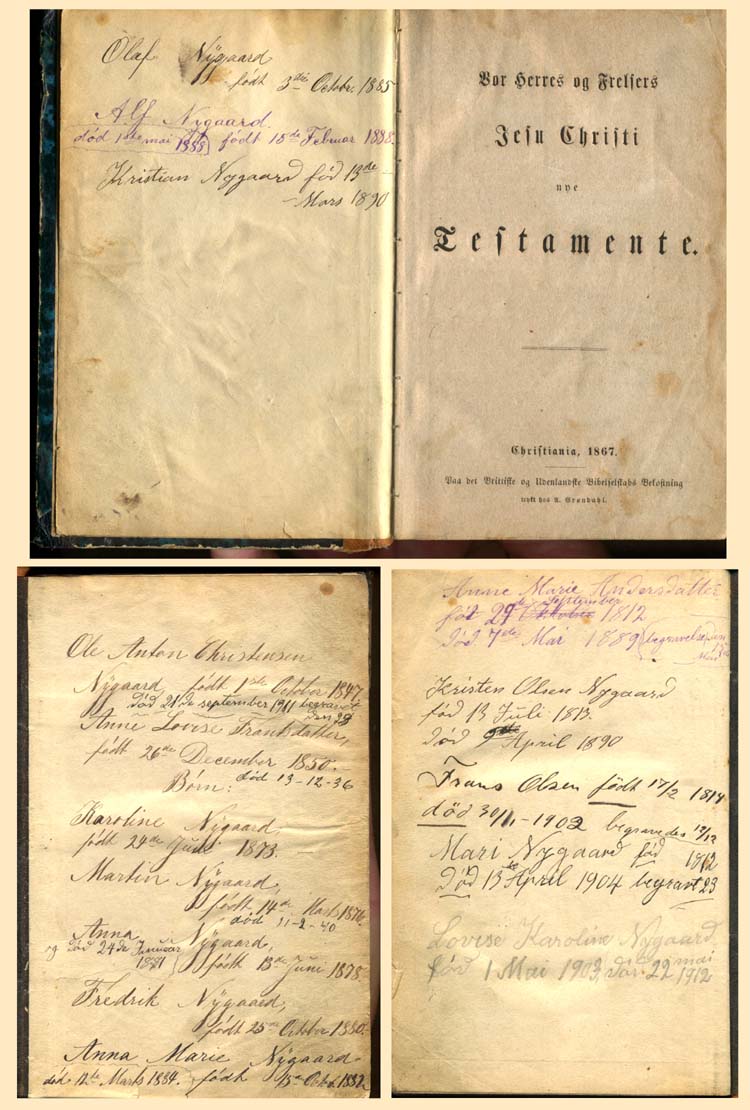 Olaf Nÿgaard
født 3die Octobr. 1885
Alf Nÿgaard
død 1ste mai 1888 født 15de Februar 1888.
Kristian Nÿgaard fød 13de
Mars 1890
Vor Herres og Frelsers
Jesu Christi
nye
Testamente.
Christiania, 1867.
Paa det Brittiske og Udenlandske Bibelselskabs Bekostning
trykt hos A. Grøndahl.
Ole Anton Christensen
Nÿgaard, født 1ste October 1847.
død 21de september 1911 begravet
den 29
Anne Lovise Frantsdatter,
født 26de December 1850.
Børn: død 13-12-36
Karoline Nÿgaard,
født 24de Juni 1873.
Martin Nÿgaard,
født 14de Marts 1876.
død 11-2-40
Anna Nÿgaard,
og død 24de Januar
1881 født 13de Juni 1878.
Fredrik Nÿgaard,
født 25de October 1880.
Anna Marie Nÿgaard
død 12te Marts 1884. født 15de Octob. 1882.
Anne Marie Andersdatter
September
fød 29de Oktober 1812
død 7de Mai 1889 (begravelse den
Mai
Kristen Olsen Nygaard
fød 13 Juli 1813.
død April 1890
Frans Olsen født 17/2 1814
død 30/11-1902 begravedes 12/12
Mari Nygaard fød 1812
Død 13de April 1904 begravt 23
Lovise Karoline Nygaard
fød 1 Mai 1903, dør 22 mai
1912